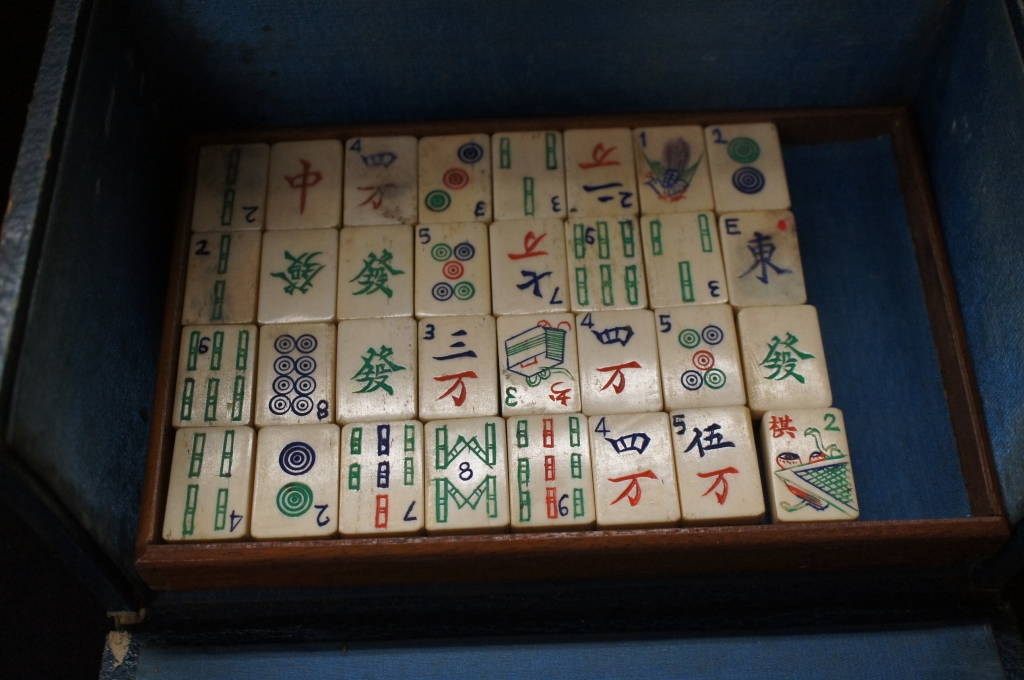 2
中
4 四
万
3
3
2 二
万
1
2
2
發
發
5
7 七
万
6
3
E
東
6
8
發
3 三
万
3
4 四
万
5
發
4
2
7
8
9
4 四
万
5 伍
万
棋 2